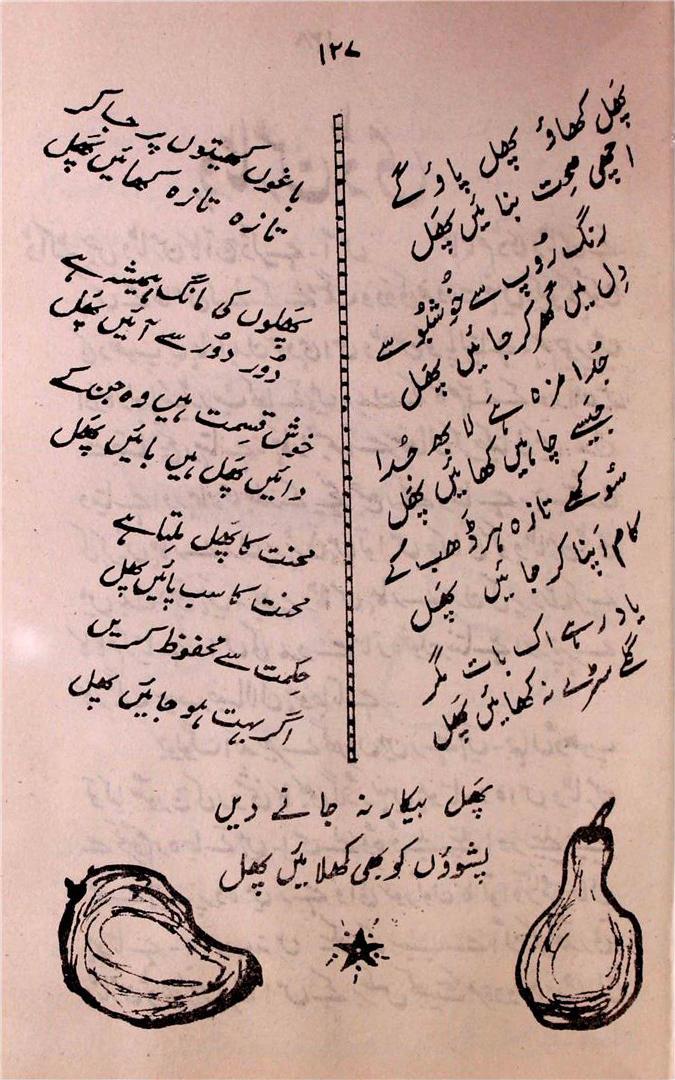 ۱۲۷
پھل کھاؤ پھل پاؤ گے
اچھی صحت بنائیں پھل
رنگ رُوپ سے خُوشبُو سے
دِل میں گھر کر جائیں پھل
جُدا مزہ ہے لابھ جُدا
جیسے چاہیں کھائیں پھل
سُوکھے تازہ ہر ڈَھب کے
کام اَپنا کر جائیں پھل
یاد رہے اک بات مگر
گلے سڑے نہ کھائیں پھل
باغوں کھیتوں پر جا کر
تازہ تازہ کھائیں پھل
پھلوں کی مانگ ہمیشہ ہے
دُور دُور سے آئیں پھل
خوش قسمت ہیں وہ جن کے
دائیں پھل ہیں بائیں پھل
محنت کا پھل ملتا ہے
محنت کا سب پائیں پھل
حکمت سے محفوظ کریں
اگر بہت ہو جائیں پھل
پھل بیکار نہ جانے دیں
پشوؤں کو بھی کھلائیں پھل